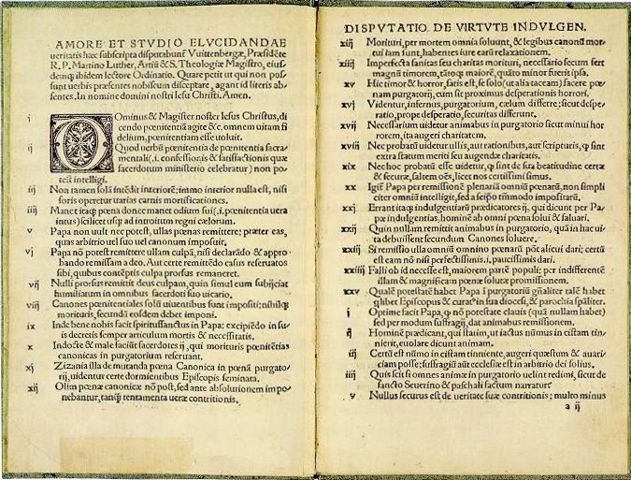 AMORE ET STVDIO ELVCIDANDAE
ueritatis hæc subscripta disputabunť Vuittenbergæ, Præsidēte
R. P. Martino Luther, Artiū & S. Theologiæ Magistro, eius-
demq; ibidem lectore Ordinatio. Quare petit ut qui non pos-
sunt uerbis præsentes nobiscum disceptare, agant id literis ab-
sentes. In nomine domini nostri Iesu Christi. Amen.
i Ominus & Magister noster Iesus Christus, di-
cendo pœnitentiā agite &c. omnem uitam fi
delium, pœnitentiam esse uoluit.
ij Quod uerbū pœnitentia de pœnitentia sacra-
mentali (.i. confessionis & satisfactionis quæ
sacerdotum ministerio celebratur) non po-
test intelligi.
iij Non tamen solā intēdit interiorē: immo interior nulla est, nisi
foris operetur uarias carnis mortificationes.
iiij Manet itaq; pœna donec manet odium sui (.i. pœnitentia uera
intus) scilicet usq; ad introitum regni cælorum.
v Papa non uult nec potest, ullas pœnas remittere: præter eas,
quas arbitrio uel suo uel canonum imposuit.
vj Papa nō potest remittere ullam culpā, nisi declarādo & appro-
bando remissam a deo. Aut certe remittēdo casus reseruatos
sibi, quibus contēptis culpa prorsus remaneret.
vij Nulli prorsus remittit deus culpam, quin simul eum subijciat
humiliatum in omnibus sacerdoti suo uicario.
viij Canones pœnitentiales solū uiuentibus sunt impositi: nihilq;
morituris, secundū eosdem debet imponi.
ix Inde bene nobis facit spiritussanctus in Papa: excipiēdo in su-
is decretis semper articulum mortis & necessitatis.
x Indocte & male faciūt sacerdotes ij, qui morituris pœnitētias
canonicas in purgatorium reseruant.
xj Zizania illa de mutanda pœna Canonica in pœnā purgato-
rij, uidentur certe dormientibus Episcopis seminata.
xij Olim pœnæ canonicæ nō post, sed ante absolutionem impo-
nebantur, tanq̄ tentamenta ueræ contritionis.
DISPVTATIO DE VIRTVTE INDVLGEN.
xiij Morituri, per mortem omnia soluunt, & legibus canonū mor-
tui iam sunt, habentes iure earū relaxationem.
xiiij Imperfecta sanitas seu charitas morituri, necessario secum fert
magnū timorem, tātoq; maiorē, quāto minor fuerit ipsa.
xv Hic timor & horror, satis est, se solo (ut alia taceam) facere pœ-
nam purgatorij, cum sit proximus desperationis horrori.
xvj Videntur, infernus, purgatorium, cælum differre: sicut despe-
ratio, prope desperatio, securitas differunt.
xvij Necessarium uidetur animabus in purgatorio sicut minui hor
rorem, ita augeri charitatem.
xviij Nec probatū uidetur ullis, aut rationibus, aut scripturis, q̄ sint
extra statum meriti seu augendæ charitatis.
xix Nec hoc probatū esse uidetur, q̄ sint de sua beatitudine certæ
& securæ, saltem oēs, licet nos certissimi simus.
xx Igiť Papa per remissionē plenariā omniū pœnarū, non simpli
citer omniū intelligit, sed a seipso tātummodo impositarū.
xxj Errant itaq; indulgentiarū prædicatores ij, qui dicunt per Pa-
pæ indulgentias, hominē ab omni pœna solui & saluari.
xxij Quin nullam remittit animabus in purgatorio, quā in hac ui-
ta debuissent secundum Canones soluere.
xxiij Si remissio ulla omniū omnino pœnarū pōt alicui dari: certū
est eam nō nisi perfectissimis .i. paucissimis dari.
xxiiij Falli ob id necesse est, maiorem partē populi: per indifferentē
illam & magnificam pœnæ solutæ promissionem.
xxv Qualē potestatē habet Papa ī purgatoriū gn̄aliter talē habet
quilibet Episcopus & curat9 in sua diocesi, & parochia spāliter.
i Optime facit Papa, q̄ nō potestate clauis (quā nullam habet)
sed per modum suffragij, dat animabus remissionem.
ij Hominē prædicant, qui statim, ut iactus nūmus in cistam tin-
nierit, euolare dicunt animam.
iij Certū est nūmo in cistam tinniente, augeri quæstum & auari-
ciam posse: suffragiū aūt ecclesiæ est in arbitrio dei solius.
iiij Quis scit si omnes animæ in purgatorio uelint redimi, sicut de
sancto Seuerino & paschali factum narratur.
v Nullus securus est de ueritate suæ contritionis: multo minus
a ij